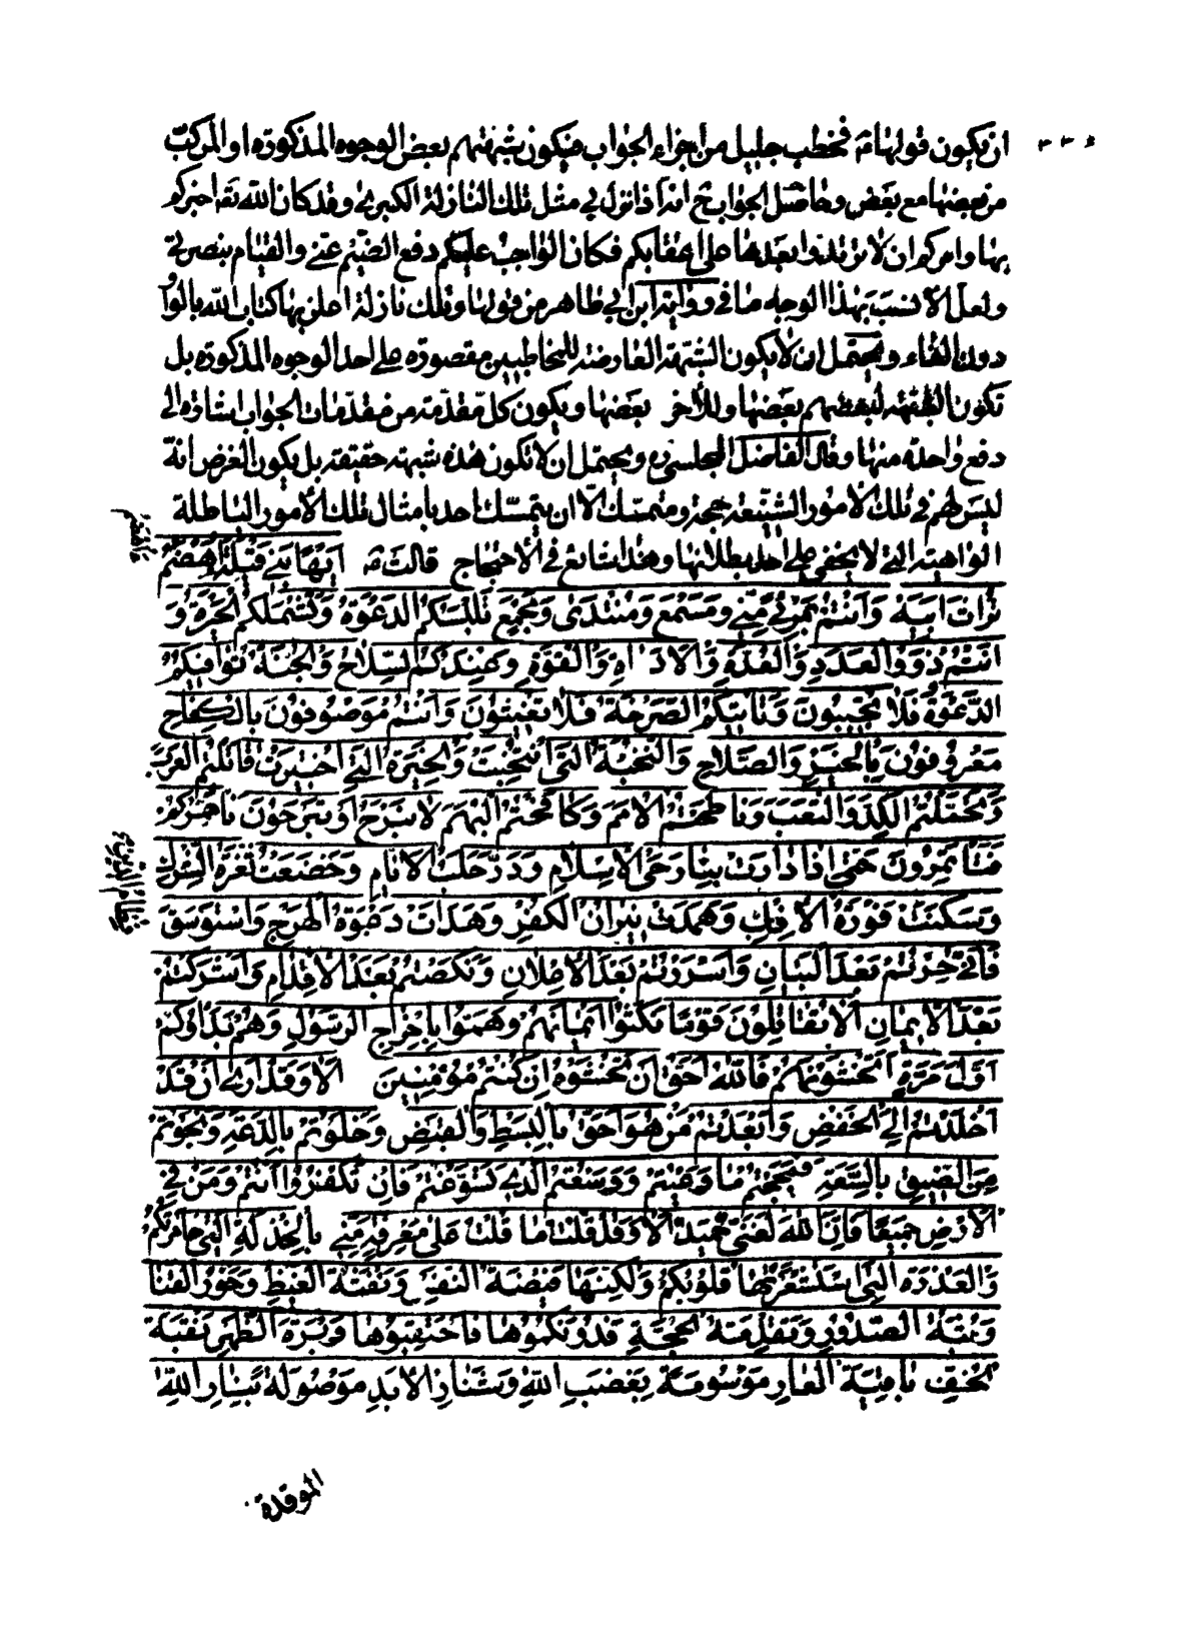 ٣٣٤
ان يكون قولها ثم فخطب جليل من اجزاء الجواب فيكون شبهتهم بعض الوجوه المذكورة او المركب
من بعضها مع بعض وحاصل الجواب ح انه اذا نزل بي مثل تلك النازلة الكبرى وقد كان الله تعه اخبركم
بها وامركم ان لا ترتدوا بعدها على اعقابكم فكان الواجب عليكم دفع الضيم عني والقيام بنصرتي
ولعل الانسب بهذا الوجه ما في رواية ابن ابي طاهر من قولها وتلك نازلة اعلن بها كتاب الله بالواو
دون الفاء ويحتمل ان لا يكون الشبهة العارضة للمخاطبين مقصورة على احد الوجوه المذكورة بل
تكون الشبهة لبعضهم بعضها وللآخر بعضها ويكون كل مقدمة من مقدمات الجواب اشارة الى
دفع واحدة منها وقال الفاضل المجلسي ره ويحتمل ان لا تكون هذه شبهة حقيقة بل يكون الغرض انه
ليس لهم في تلك الامور الشنيعة حجة ومتمسك الا ان يتمسك احد بامثال تلك الامور الباطلة
الواهية التي لا يخفى على احد بطلانها وهذا شائع في الاحتجاج قالت ثم ايها بني قيلة ءاهضم
تراث ابيه وانتم بمرئ مني ومسمع ومنتدى ومجمع تلبسكم الدعوة وتشملكم الحيرة و
انتم ذوو العدد والعدة والاداة والقوة وعندكم السلاح والجنة توافيكم
الدعوة فلا تجيبون وتاتيكم الصرخة فلا تغيثون وانتم موصوفون بالكفاح
معروفون بالخير والصلاح والنخبة التي انتخبت والخيرة التي اختيرت قاتلتم العرب
وتحملتم الكد والتعب وناطحتم الامم وكافحتم البهم لا نبرح او تبرحون نامركم
فتاتمرون حتى اذا دارت بنا رحى الاسلام ودر حلب الانام وخضعت نعرة الشرك
وسكنت فورة الافك وهمدت نيران الكفر وهدات دعوة الهرج واستوسق
فانى حرتم بعد البيان واسررتم بعد الاعلان ونكصتم بعد الاقدام واشركتم
بعد الايمان الا تقاتلون قوما نكثوا ايمانهم وهموا باخراج الرسول وهم بداوكم
اول مرة اتخشونهم فالله احق ان تخشوه ان كنتم مؤمنين الا وقد ارى ان قد
اخلدتم الى الخفض وابعدتم من هو احق بالبسط والقبض وخلوتم بالدعة ونجوتم
من الضيق بالسعة فمججتم ما وعيتم ودسعتم الذي تسوغتم فان تكفروا انتم ومن في
الارض جميعا فان الله لغني حميد الا وقد قلت ما قلت على معرفة مني بالخذلة التي خامرتكم
والغدرة التي استشعرتها قلوبكم ولكنها فيضة النفس ونفثة الغيظ وخور القنا
وبثة الصدور وتقدمة الحجة فدونكموها فاحتقبوها دبرة الظهر نقبة
الخف باقية العار موسومة بغضب الله وشنار الابد موصولة بنار الله
الموقدة